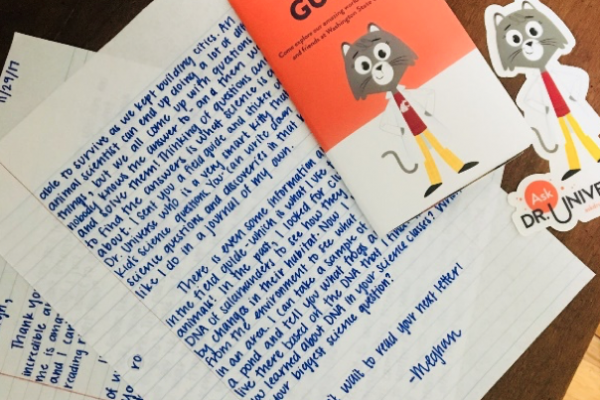 11/29/17
able to survive as we kept building cities. An
animal scientist can end up doing a lot of di
things, but we all come up with questions
nobody knows the answer to and then
and to solve them. Thinking of questions an
to find the answers is what science i
about. I sent you a field guide and sticker
Dr. Universe who is a very smart cat th
kids' science questions. You can write down
science questions and discoveries in that
like I do in a journal of my own.
There is even some information a
in the field guide - which is what I use
animals! In the past, I looked for c
DNA of salamanders to see how the
by changes in their habitat. Now I
from the environment to see what
in an area. I can take a sample of
a pond and tell you what frogs a
live there based on the DNA that I
you learned about DNA in your science class?
our biggest science question?
't wait to read your next letter!
-Meghan
Thank yo
incredible a
me is an
and I can
reading
GU
Come explore our amazing world
and friends at Washington State
Ask
DR. UNIVE